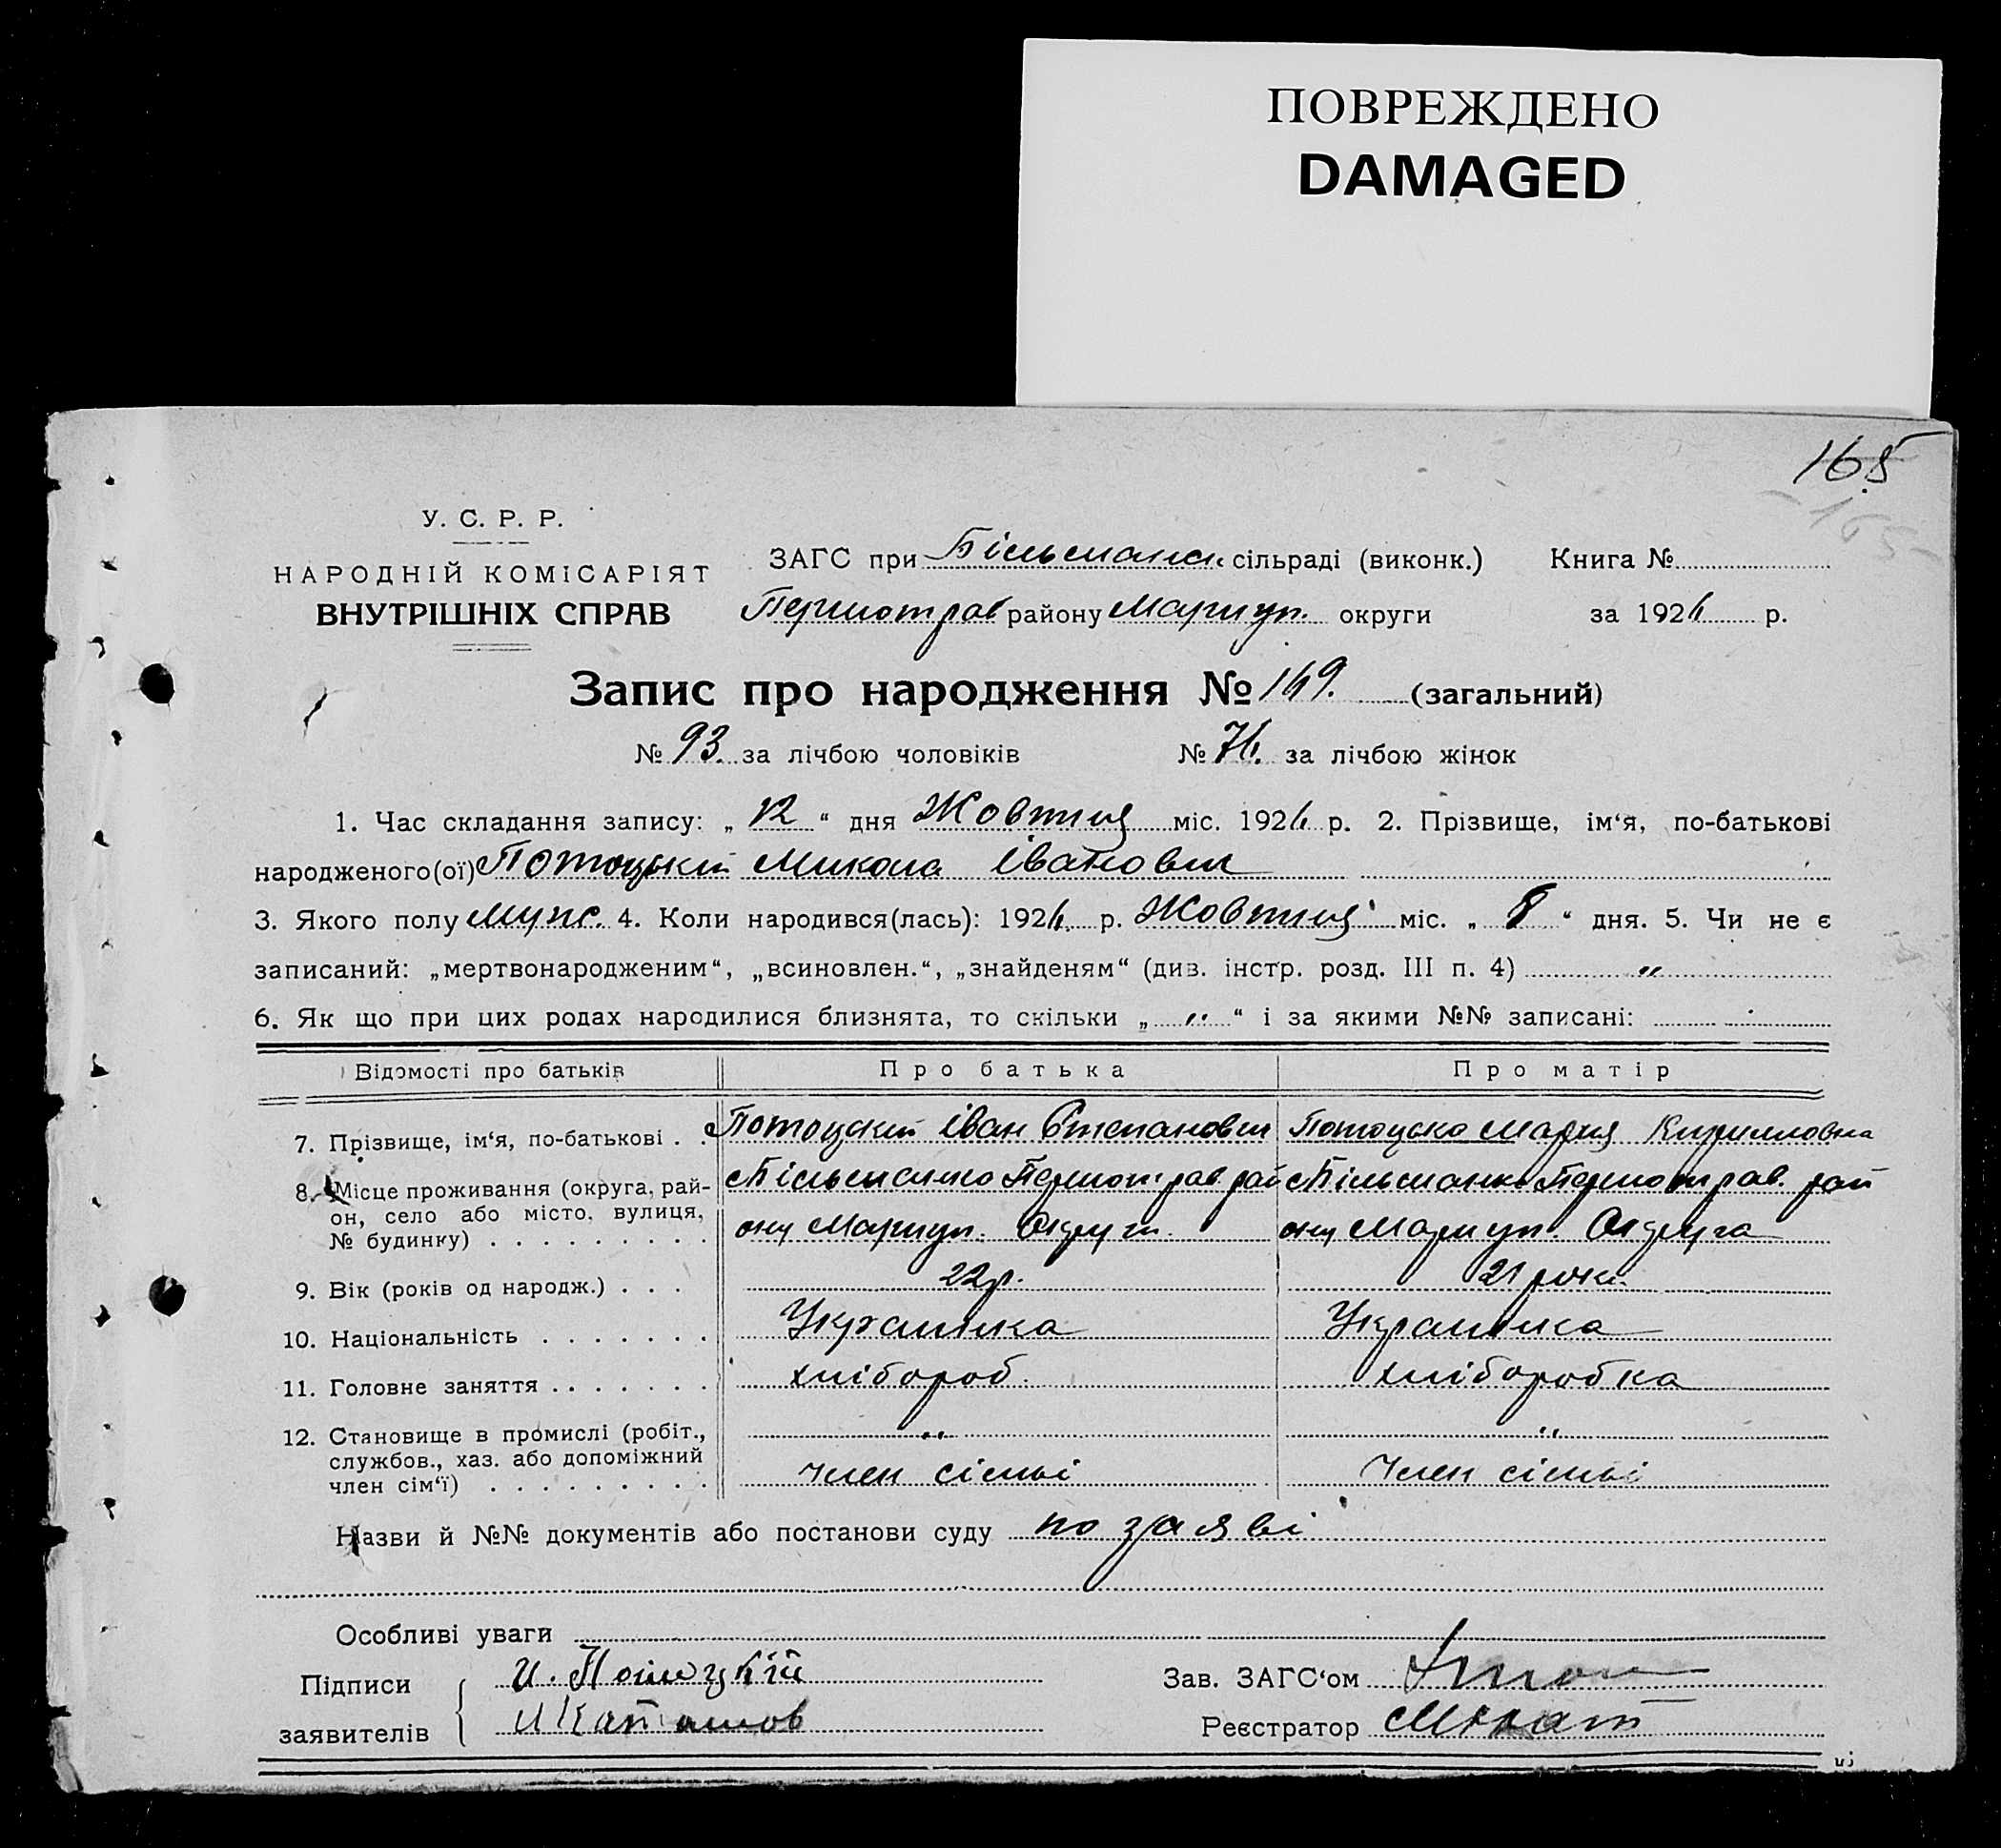 ПОВРЕЖДЕНО
DAMAGED
165
165
У. С. Р. Р.
НАРОДНІЙ КОМІСАРІЯТ
ВНУТРІШНІХ СПРАВ
ЗАГС при Більманк. сільраді (виконк.) Книга №
Першотрав району Мариуп. округи за 1926 р.
Запис про народження № 169. (загальний)
№ 93. за лічбою чоловіків № 76. за лічбою жінок
1. Час складання запису: „ 12 “ дня Жовтня міс. 1926 р. 2. Прізвище, ім‘я, по-батькові
народженого(ої) Потоцький Микола Іванович
3. Якого полу Муже. 4. Коли народився(лась): 1926. р. Жовтня міс. „ 8 “ дня. 5. Чи не є
записаний: „мертвонародженим“, „всиновлен.“, „знайденям“ (див. інстр. розд. III п. 4) „
6. Як що при цих родах народилися близнята, то скільки „ „ “ і за якими №№ записані:
Відомості про батьків Про батька Про матір
7. Прізвище, ім‘я, по-батькові . . Потоцкий Іван Степанович Потоцько Мария Кирилловна
8. Місце проживання (округа, рай- Більманко Першотрав. рай Більманко Першотрав. рай
он, село або місто, вулиця,
№ будинку) . . . . . . . . . ону Мариуп. Округи. ону Мариуп. Округа
9. Вік (років од народж.) . . . 22р. 21 роки
10. Національність . . . . . . . Украинка Украинка
11. Головне заняття . . . . . . . хлібороб. хлібopобка
12. Становище в промислі (робіт., „ „
службов., хаз. або допоміжний
член сім‘ї) . . . . . . . . . член сімьі член сімьі
Назви й №№ документів або постанови суду по заяві
Особливі уваги
Підписи И. Потоцкій Зав. ЗАГС‘ом
заявителів Реєстратор